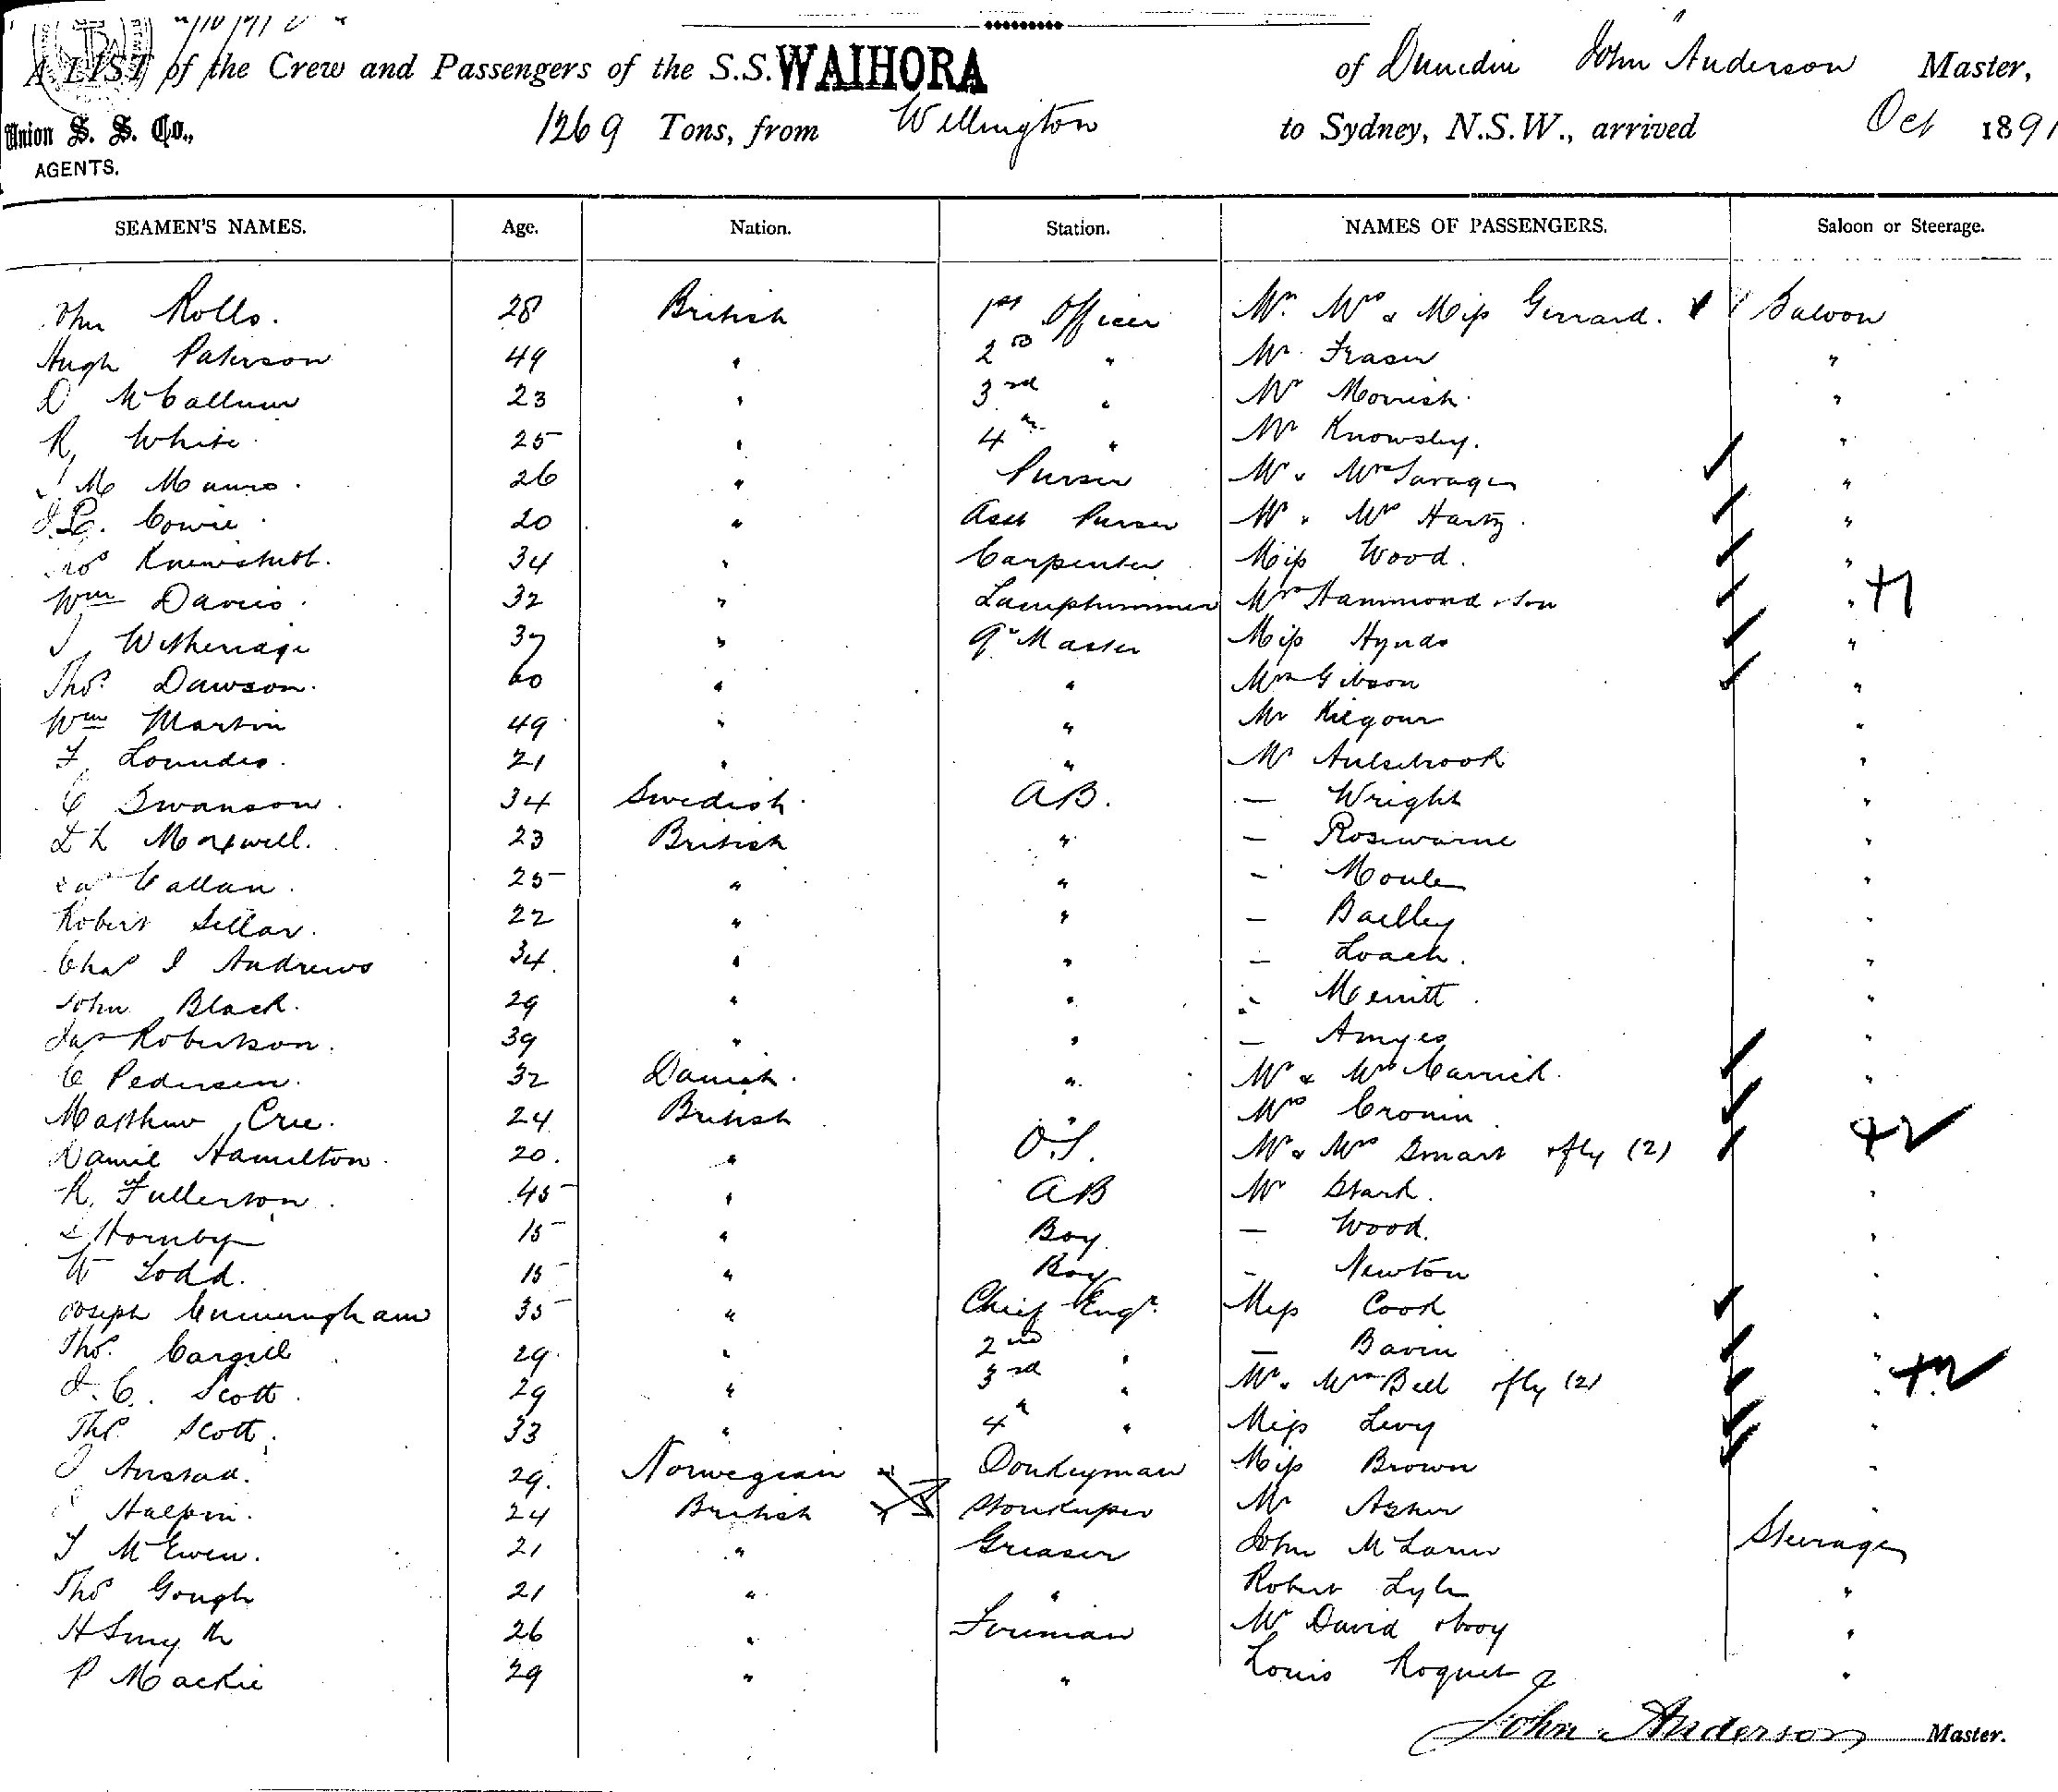 A LIST of the Crew and Passengers of the S.S. WAIHORA of Dunedin John Anderson Master,
Union S. S. Co., 1269 Tons, from Wellington to Sydney, N.S.W., arrived Oct 1891
AGENTS.
SEAMEN'S NAMES. Age. Nation. Station. NAMES OF PASSENGERS. Saloon or Steerage.
John Rollo. 28 British 1st Officer Mr. Mrs & Miss Gerrard. Saloon
Hugh Paterson 49 " 2nd " Mr Fraser "
D McCallum 23 " 3rd " Mr Morrish "
R, White. 25 " 4th " Mr Knowsley. "
J M Munro. 26 " Purser Mr & Mrs Savage "
Cowie. 20 " Asst Purser Mr & Mrs Hartz. "
34 " Carpenter Miss Wood. "
Wm Davis. 32 " Lamptrimmer Mrs Hammond & Son " +1
J Witheridge 37 " Qr Master Miss Hynds "
Thos. Dawson. 60 " " Mrs Gibson "
Wm Martin 49 " " Mr Kilgour "
F, Lowndes. 21 " " Mr Aulsebrook "
C Swanson. 34 Swedish. AB. — Wright "
Maxwell. 23 British " — Rosewarne "
Callan. 25 " " — Moule "
Robert Sellar. 22 " " — Bailley "
Chas J Andrews 34. " " — Loach. "
John Black. 29 " " — Merritt. "
Jas Robertson. 39 " " — Amyes "
C Pedersen. 32 Danish. " Mr & Mrs Carrick. "
Matthew Cree. 24 British " Mrs Cronin "
Daniel Hamilton. 20. " O.S. Mr & Mrs Smart & fly (2) +2
R, Fullerton. 45 " AB Mr Stark. "
Hornby 15 " Boy. — Wood. "
W Todd. 15 " Boy — Newton "
Joseph Cunningham 35 " Chief Engr. Miss Cook "
Thos. Cargill 29. " 2nd " — Bavin "
J. C. Scott. 29 " 3rd " Mr & Mrs Bell & fly (2) " +2
Thos. Scott. 33 " 4th " Miss Levy "
29. Norwegian Donkeyman Miss Brown "
Halpin. 24 British Storekeeper Mr Asher "
McEwen. 21 " Greaser John McLaren Steerage
Thos Gough 21 " " Robert Lyle "
H Smyth 26 " Fireman Mr David & boy "
P Mackie 29 " " Louis Roquet "
John Anderson Master.